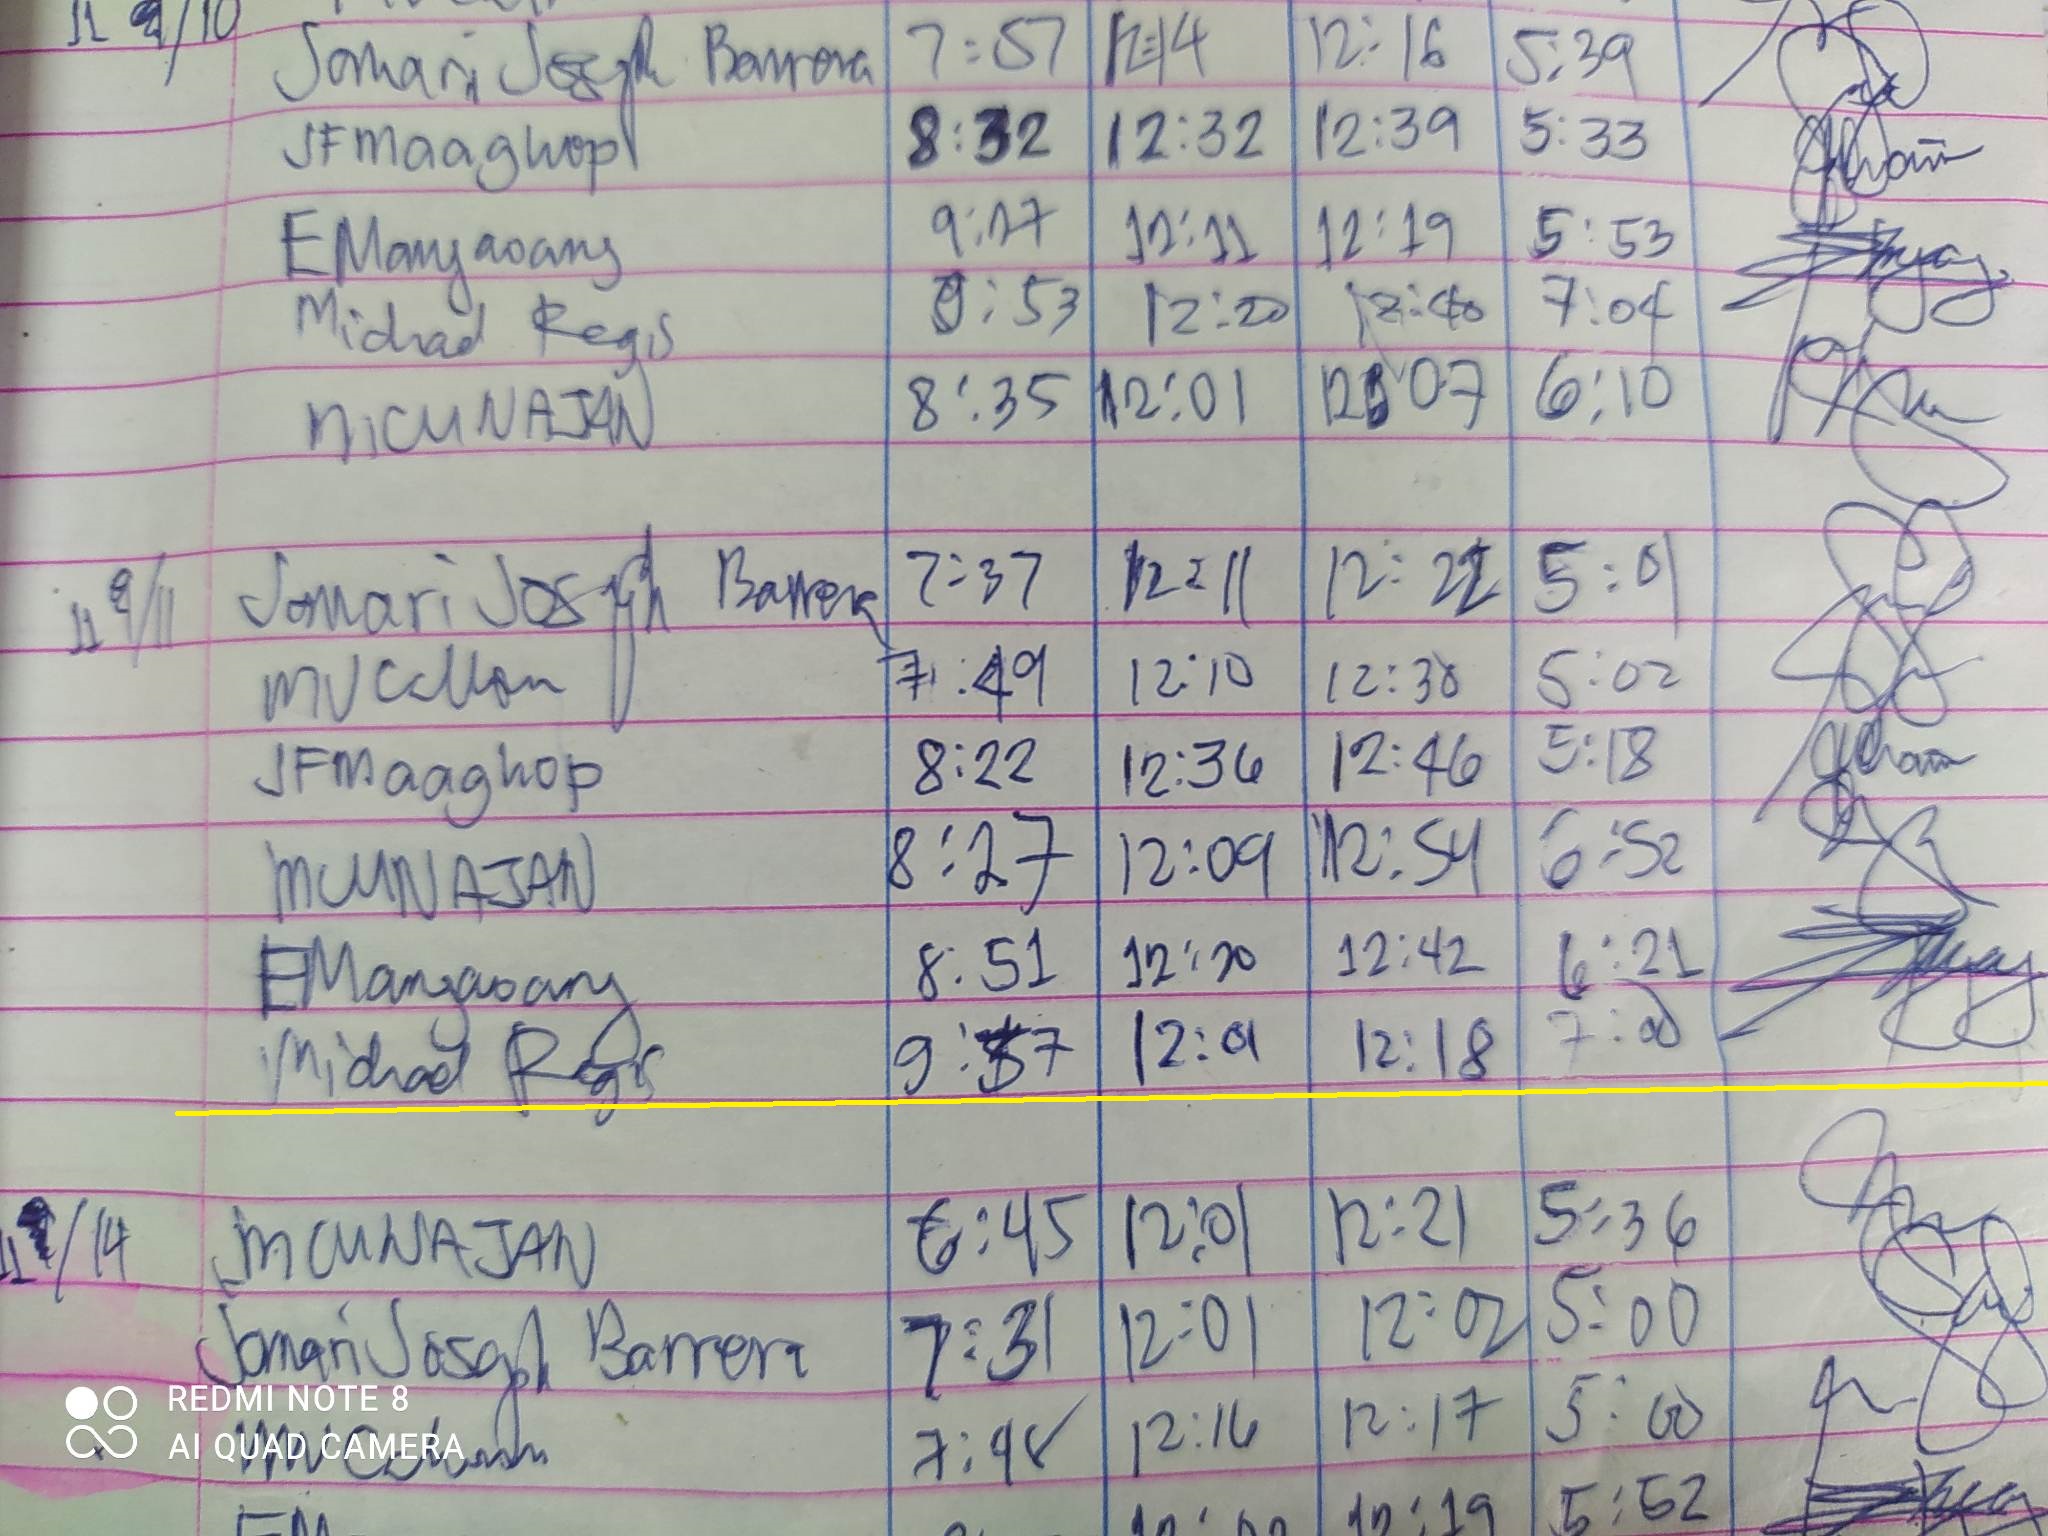 11 9/10
Jomari Joseph Barrera 7:57 12:14 12:16 5:39
JFMaaghop 8:32 12:32 12:39 5:33
EMangaoang 9:27 12:11 12:19 5:53
Michael Regis 9:53 12:20 12:40 7:04
MCUNAJAN 8:35 12:01 12:07 6:10
11 9/11 Jomari Joseph Barrera 7:37 12:11 12:22 5:01
7:49 12:10 12:30 5:02
JFMaaghop 8:22 12:36 12:46 5:18
MCUNAJAN 8:27 12:09 12:54 6:52
EMangaoang 8:51 12:20 12:42 6:21
Michael Regis 9:57 12:01 12:18 7:00
11/14 MCUNAJAN 6:45 12:01 12:21 5:36
Jomari Joseph Barrera 7:31 12:01 12:02 5:00
7:48 12:16 12:17 5:00
12:19 5:52
REDMI NOTE 8
AI QUAD CAMERA